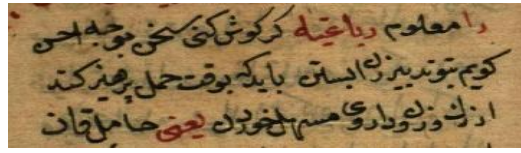 را معلوم رباعیه کر کوش کنی سخن بوجه احسن
کویم بتو تدبیر زن ابستن باید که بوقت حمل پرهیز کند
از رک زدن و داروی مسهل خوردن یعنی حامل قان